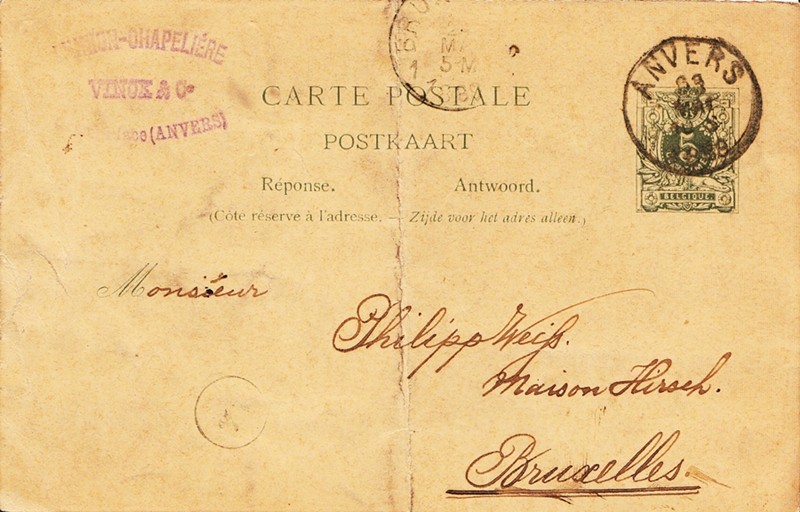 CHAPELIÈRE
VINCK & Co
(ANVERS)
CARTE POSTALE
POSTKAART
Réponse. Antwoord.
(Côté réservé à l'adresse. — Zijde voor het adres alleen.)
ANVERS
5
BELGIQUE.
Monsieur
Philipp Weiß.
Maison Hirsch.
Bruxelles.